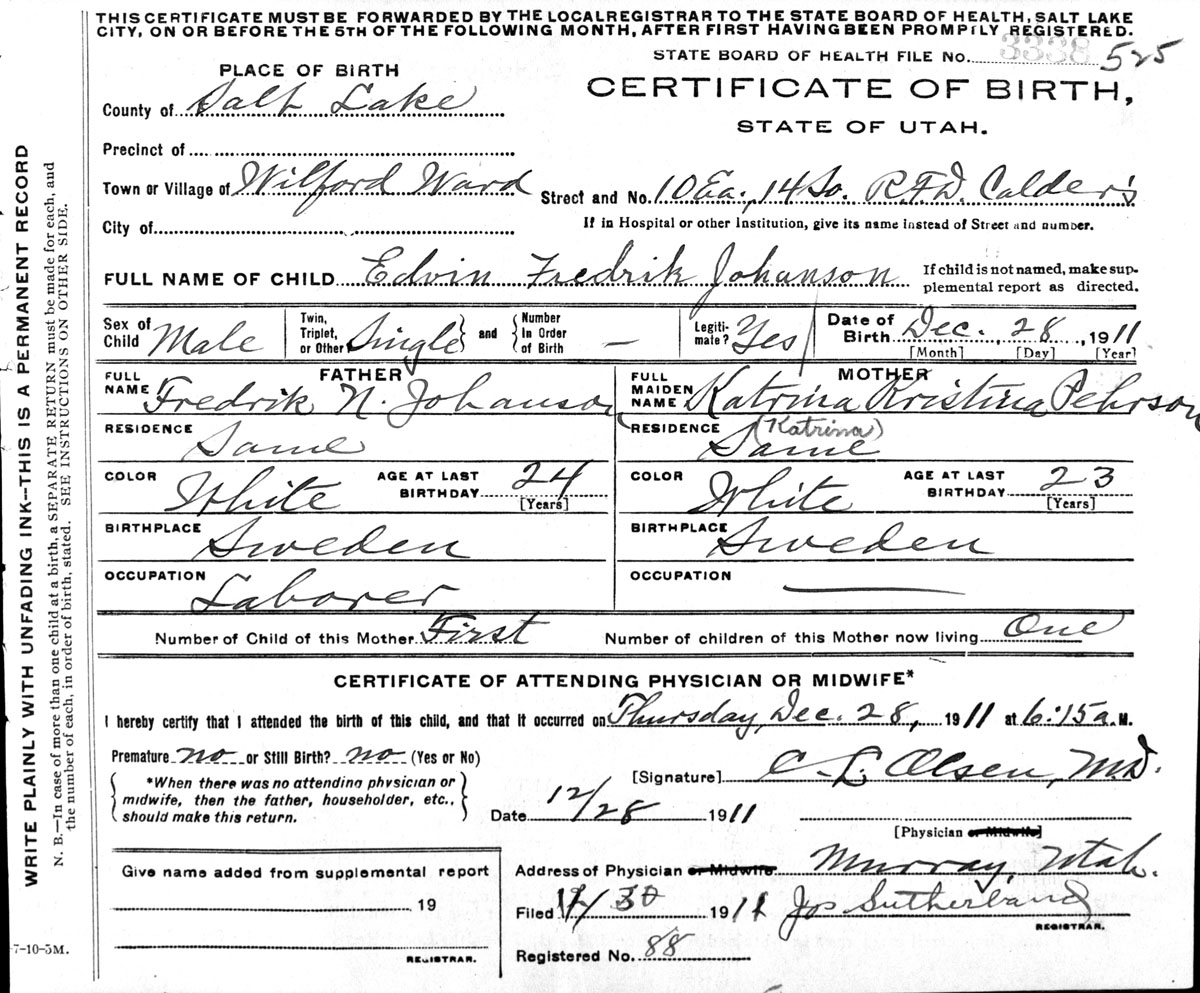 THIS CERTIFICATE MUST BE FORWARDED BY THE LOCAL REGISTRAR TO THE STATE BOARD OF HEALTH, SALT LAKE
CITY, ON OR BEFORE THE 5TH OF THE FOLLOWING MONTH, AFTER FIRST HAVING BEEN PROMPTLY REGISTERED.
STATE BOARD OF HEALTH FILE NO. 3338 525
PLACE OF BIRTH
CERTIFICATE OF BIRTH,
STATE OF UTAH.
County of Salt Lake
Precinct of
Town or Village of Wilford Ward
Street and No. 10 Ea., 14 So. R.F.D. Calder's
City of
If in Hospital or other Institution, give its name instead of Street and number.
FULL NAME OF CHILD Edvin Fredrik Johanson
If child is not named, make sup-
plemental report as directed.
Sex of Child Male
Twin, Triplet, or Other Single
and Number in Order of Birth —
Legiti-mate? Yes
Date of Birth Dec., 28, 1911
[Month] [Day] [Year]
FATHER
FULL NAME Fredrik N. Johanson
RESIDENCE Same
COLOR White
AGE AT LAST BIRTHDAY 24
[Years]
BIRTHPLACE Sweden
OCCUPATION Laborer
MOTHER
FULL MAIDEN NAME Katrina Kristina Pehrson
(Katrina)
RESIDENCE Same
COLOR White
AGE AT LAST BIRTHDAY 23
[Years]
BIRTHPLACE Sweden
OCCUPATION —
Number of Child of this Mother First
Number of children of this Mother now living One
CERTIFICATE OF ATTENDING PHYSICIAN OR MIDWIFE*
I hereby certify that I attended the birth of this child, and that it occurred on Thursday, Dec. 28, 1911 at 6:15 a. M.
Premature no or Still Birth? no (Yes or No)
*When there was no attending physician or
midwife, then the father, householder, etc.,
should make this return.
[Signature] C. L. Olsen, M.D.
Date 12/28 1911
[Physician or Midwife]
Give name added from supplemental report
19
REGISTRAR.
Address of Physician or Midwife Murray, Utah.
Filed 12/30 1911 Jos Sutherland
REGISTRAR.
Registered No. 88
7-10-5M.
WRITE PLAINLY WITH UNFADING INK--THIS IS A PERMANENT RECORD
N. B.—In case of more than one child at a birth, a SEPARATE RETURN must be made for each, and
the number of each, in order of birth, stated. SEE INSTRUCTIONS ON OTHER SIDE.